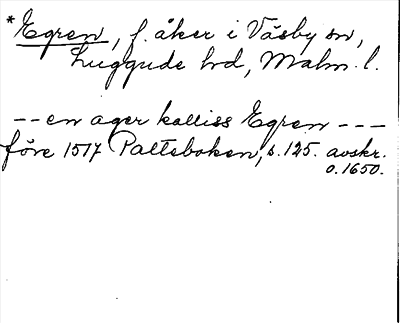 *Egren, f. åker i Väsby sn,
Luggude hd, Malm. l.
-- en ager kalliss Egren ---
före 1517 Palteboken, s. 125. avskr.
o. 1650.